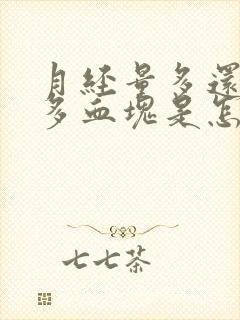 月經量多還
多血塊是怎
七七茶